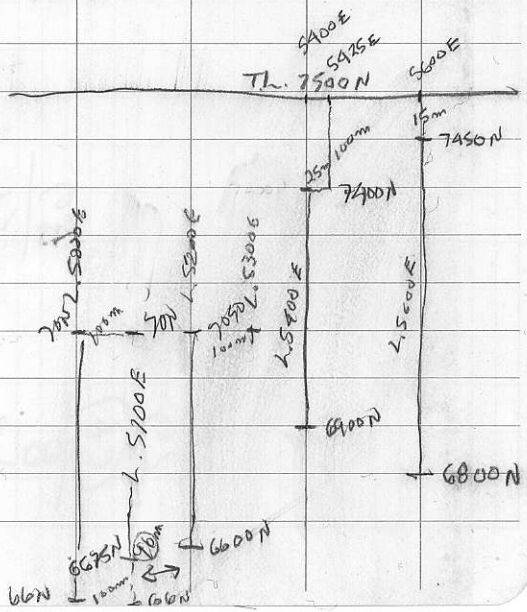 5400E
5425E
5600E
TL. 7500N
15m
7450N
25m 100m
7400N
L.5000E
L.5200E
L.5300E
70N
100m
70N
7050
100m
L.5400E
L.5600E
L.5100E
6900N
6800N
6675N
90m
6600N
66N
100m
66N